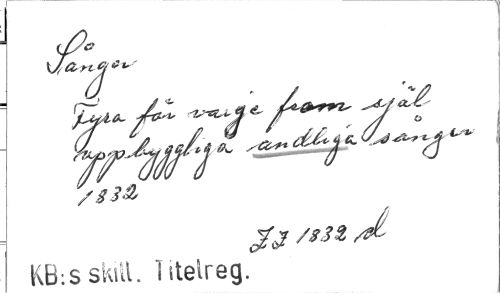 Sånger
Fyra för varje from själ
uppbyggliga andliga sånger
1832
ZZ 1832 d
KB:s skill. Titelreg.